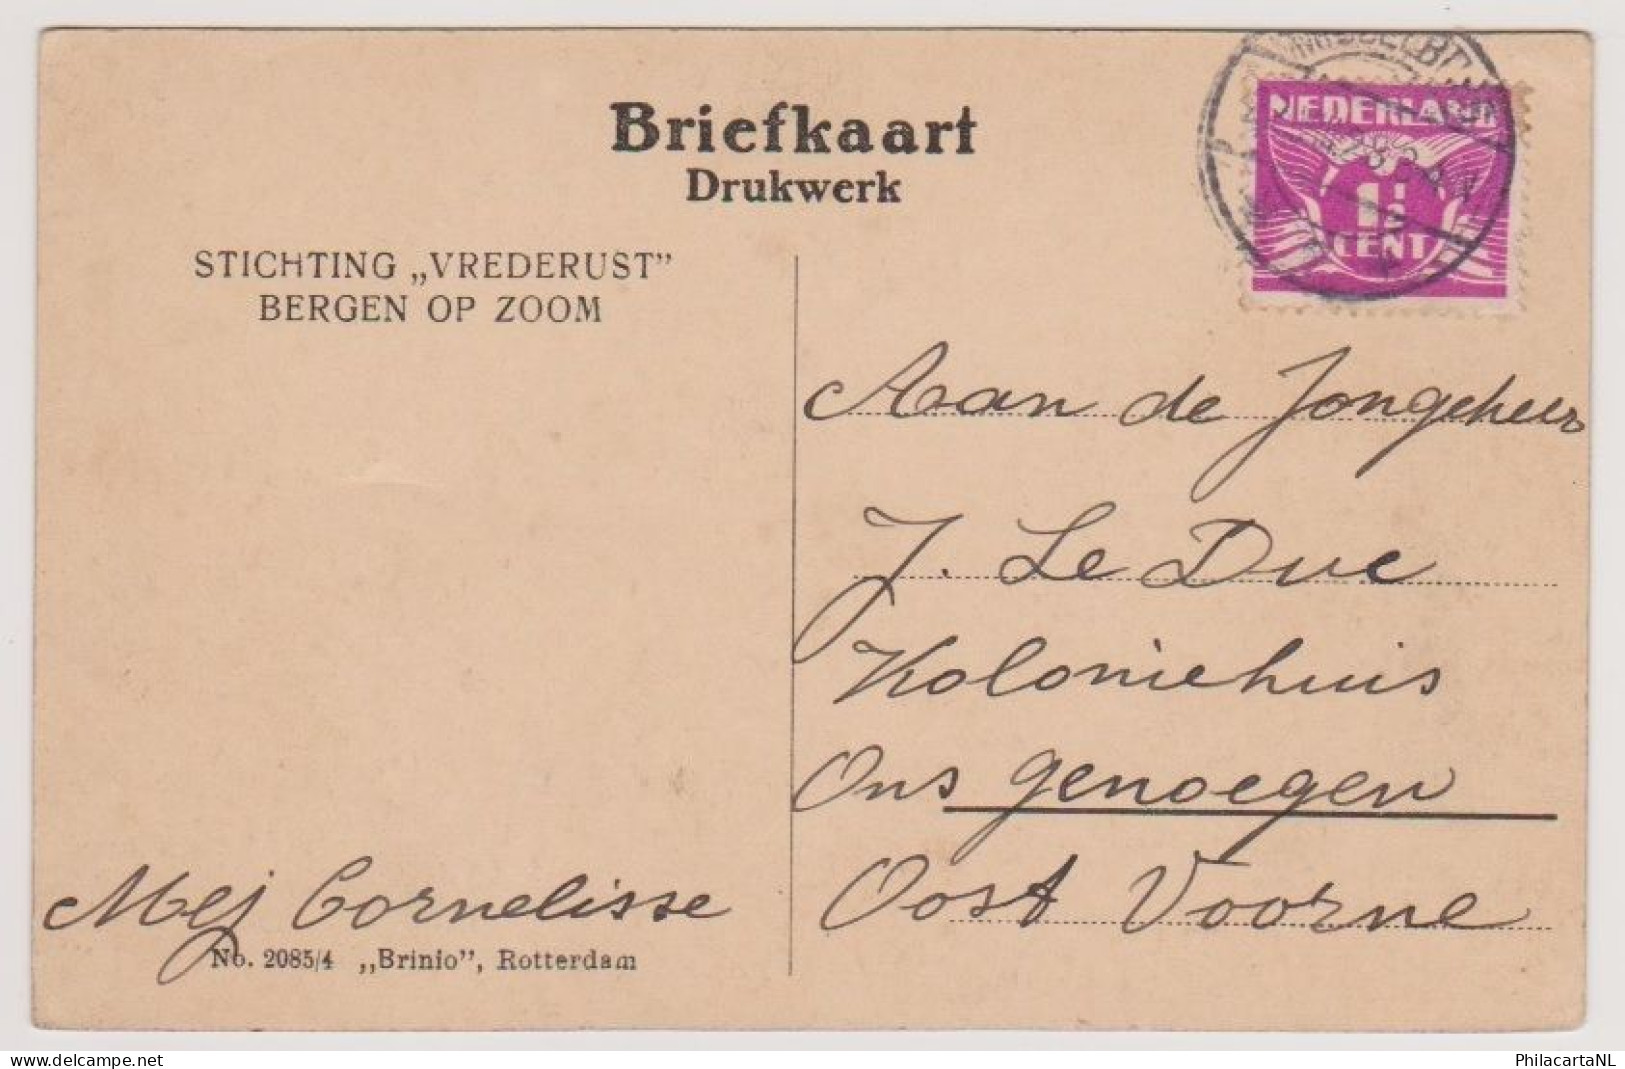 Briefkaart
Drukwerk
STICHTING „VREDERUST”
BERGEN OP ZOOM
NEDERLAND
1½
CENT
Aan de Jongeheer
J. Le Duc
Koloniehuis
Ons genoegen
Oost Voorne
Mej Cornelisse
No. 2085/4 „Brinio”, Rotterdam
www.delcampe.net
PhilacartaNL